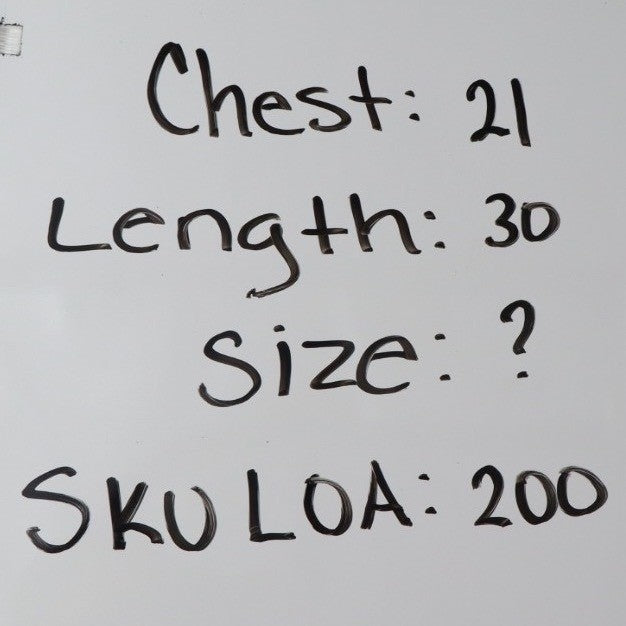 Chest: 21
Length: 30
Size: ?
SKU LOA: 200